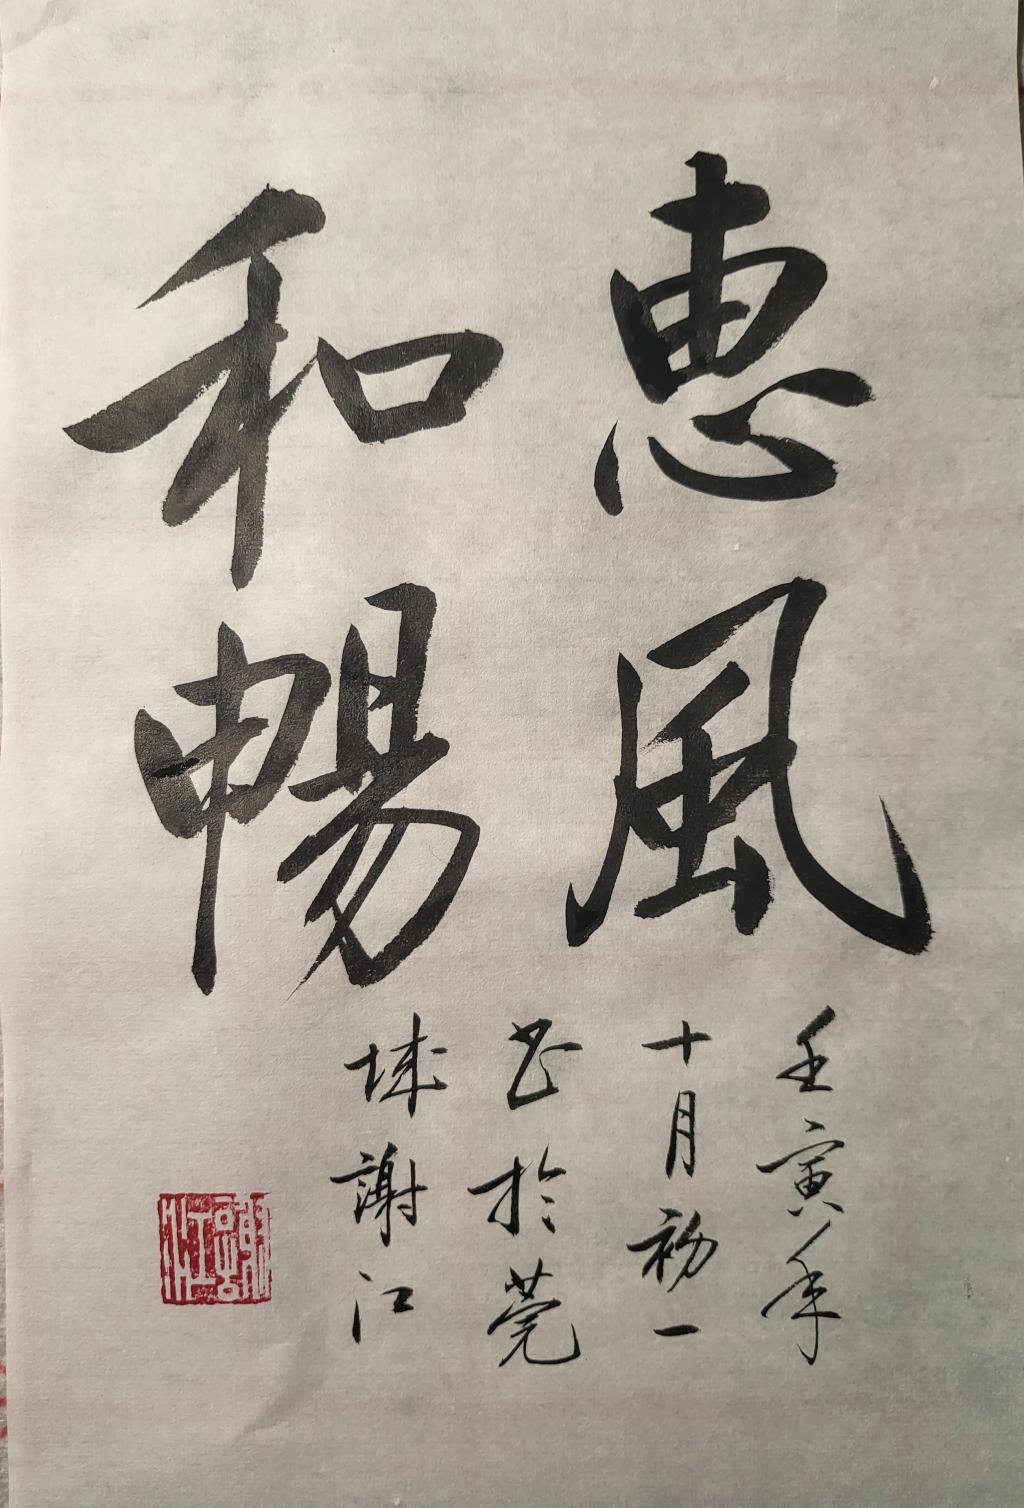 惠風
和暢
壬寅年
十月初一
书於莞
城謝江
謝江